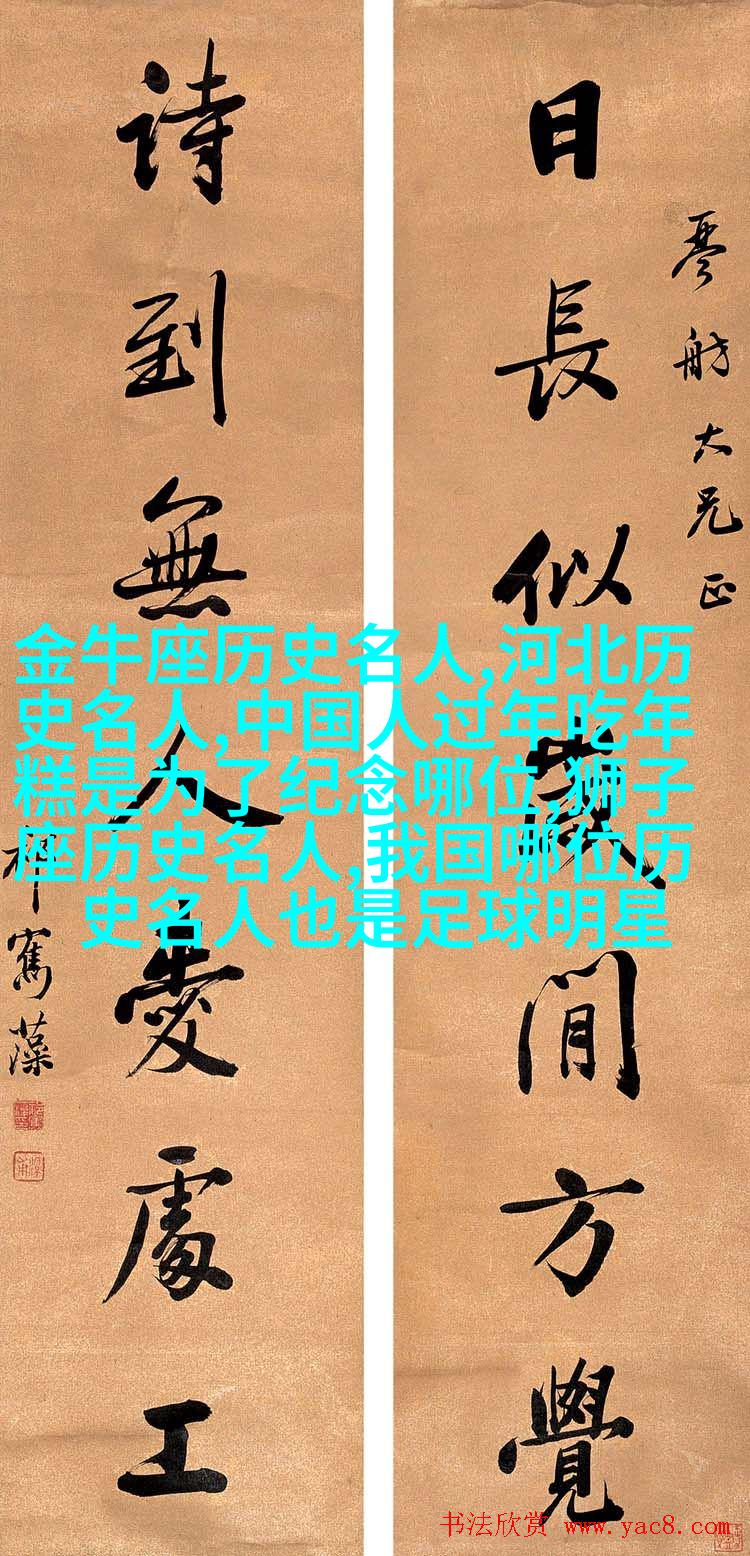 琴舫大兄正
日長似歲閒方覺
詩到無人愛處工
祁寯藻
金牛座历史名人,河北历
史名人,中国人过年吃年
糕是为了纪念哪位,狮子
座历史名人,我国哪位历
史名人也是足球明星
书法欣赏 www.yac8.com